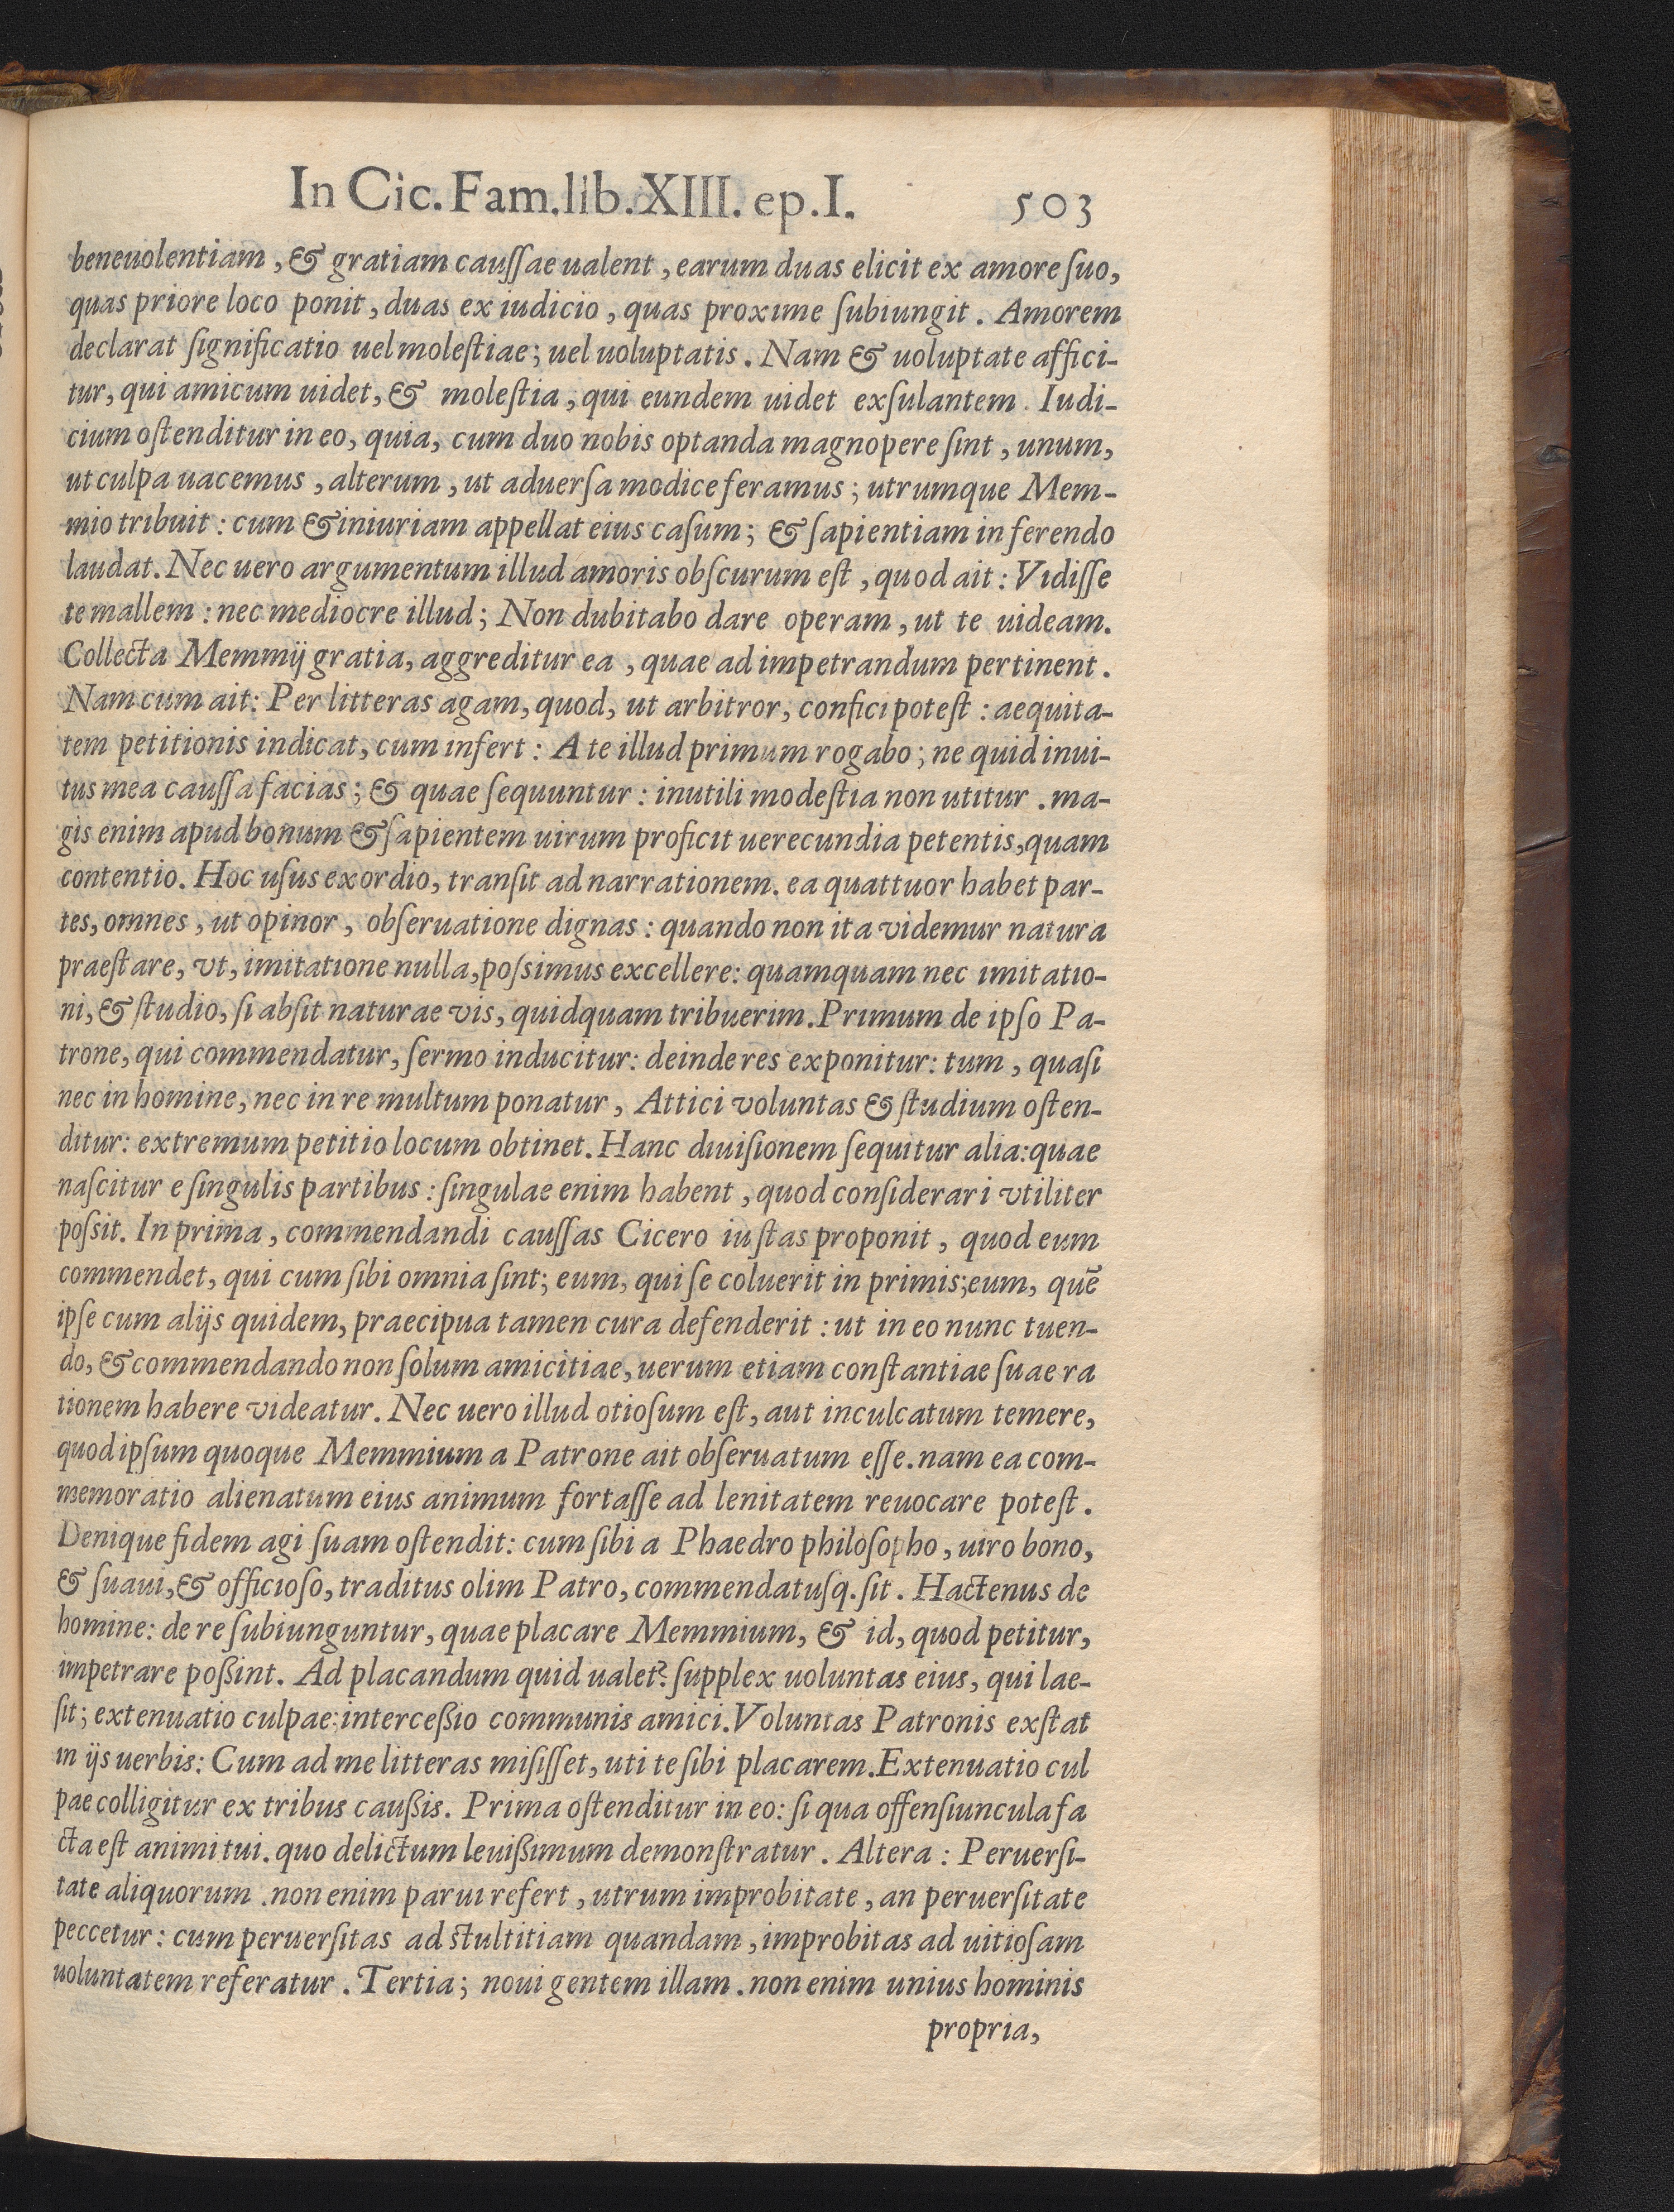 In Cic. Fam. lib. XIII. ep. I. 503
beneuolentiam, & gratiam cauſſae ualent, earum duas elicit ex amore ſuo,
quas priore loco ponit, duas ex iudicio, quas proxime ſubiungit. Amorem
declarat ſignificatio uel moleſtiae; uel uoluptatis. Nam & uoluptate affici-
tur, qui amicum uidet, & moleſtia, qui eundem uidet exſulantem. Iudi-
cium oſtenditur in eo, quia, cum duo nobis optanda magnopere ſint, unum,
ut culpa uacemus, alterum, ut aduerſa modice feramus; utrumque Mem-
mio tribuit: cum & iniuriam appellat eius caſum; & ſapientiam in ferendo
laudat. Nec uero argumentum illud amoris obſcurum eſt, quod ait: Vidiſſe
te mallem: nec mediocre illud; Non dubitabo dare operam, ut te uideam.
Collecta Memmij gratia, aggreditur ea, quae ad impetrandum pertinent.
Nam cum ait: Per litteras agam, quod, ut arbitror, confici poteſt: aequita-
tem petitionis indicat, cum infert: A te illud primum rogabo; ne quid inui-
tus mea cauſſa facias; & quae ſequuntur: inutili modeſtia non utitur. ma-
gis enim apud bonum & ſapientem uirum proficit uerecundia petentis, quam
contentio. Hoc uſus exordio, tranſit ad narrationem. ea quattuor habet par-
tes, omnes, ut opinor, obſeruatione dignas: quando non ita videmur natura
praeſtare, vt, imitatione nulla, poſsimus excellere: quamquam nec imitatio-
ni, & ſtudio, ſi abſit naturae vis, quidquam tribuerim. Primum de ipſo Pa-
trone, qui commendatur, ſermo inducitur: deinde res exponitur: tum, quaſi
nec in homine, nec in re multum ponatur, Attici voluntas & ſtudium oſten-
ditur: extremum petitio locum obtinet. Hanc diuiſionem ſequitur alia: quae
naſcitur e ſingulis partibus: ſingulae enim habent, quod conſiderari vtiliter
poſsit. In prima, commendandi cauſſas Cicero iuſtas proponit, quod eum
commendet, qui cum ſibi omnia ſint; eum, qui ſe coluerit in primis; eum, quē
ipſe cum alijs quidem, praecipua tamen cura defenderit: ut in eo nunc tuen-
do, & commendando non ſolum amicitiae, uerum etiam conſtantiae ſuae ra
tionem habere videatur. Nec uero illud otioſum eſt, aut inculcatum temere,
quod ipſum quoque Memmium a Patrone ait obſeruatum eſſe. nam ea com-
memoratio alienatum eius animum fortaſſe ad lenitatem reuocare poteſt.
Denique fidem agi ſuam oſtendit: cum ſibi a Phaedro philoſopho, uiro bono,
& ſuaui, & officioſo, traditus olim Patro, commendatuſq. ſit. Hactenus de
homine: de re ſubiunguntur, quae placare Memmium, & id, quod petitur,
impetrare poßint. Ad placandum quid ualet? ſupplex uoluntas eius, qui lae-
ſit; extenuatio culpae: interceßio communis amici. Voluntas Patronis exſtat
in ijs uerbis: Cum ad me litteras miſiſſet, uti te ſibi placarem. Extenuatio cul
pae colligitur ex tribus caußis. Prima oſtenditur in eo: ſi qua offenſiuncula fa
cta eſt animi tui. quo delictum leuißimum demonſtratur. Altera: Peruerſi-
tate aliquorum. non enim parui refert, utrum improbitate, an peruerſitate
peccetur: cum peruerſitas ad ſtultitiam quandam, improbitas ad uitioſam
uoluntatem referatur. Tertia; noui gentem illam. non enim unius hominis
propria,